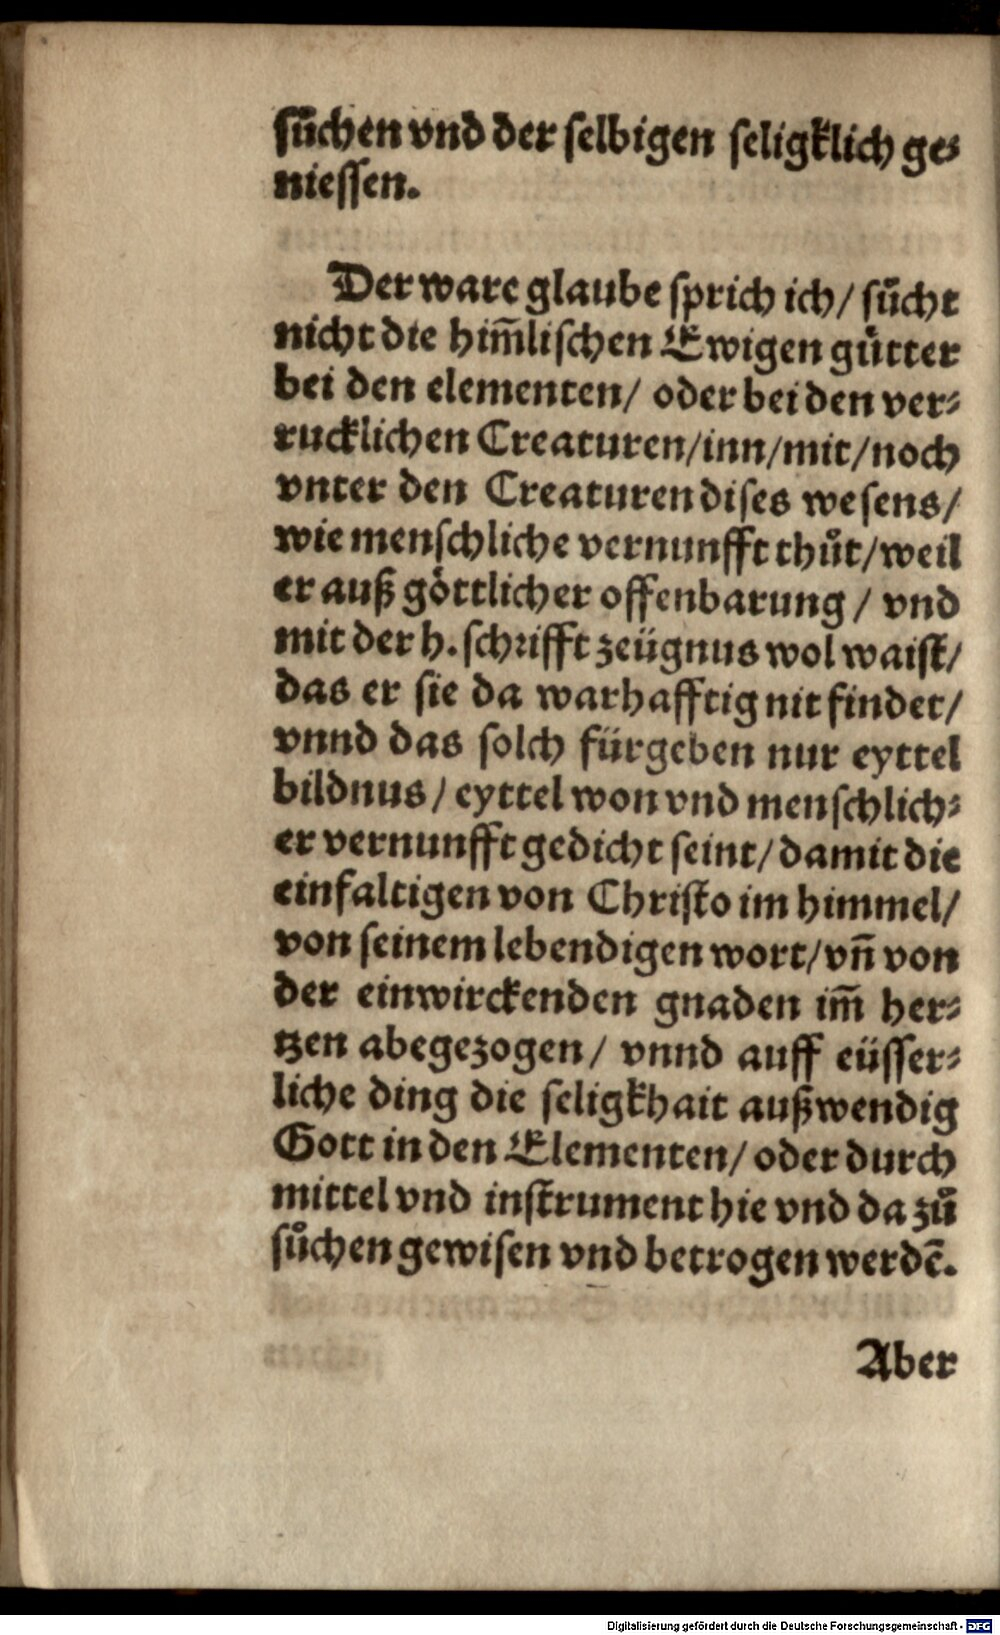 sůchen vnd der selbigen seligklich ge⸗
niessen.
Der ware glaube sprich ich/ sůcht
nicht die him̃lischen Ewigen gůtter
bei den elementen/ oder bei den ver⸗
rucklichen Creaturen/inn/mit/noch
vnter den Creaturen dises wesens/
wie menschliche vernunfft thůt/weil
er auß göttlicher offenbarung / vnd
mit der h. schrifft zeügnus wol waist/
das er sie da warhafftig nit findet/
vnnd das solch fürgeben nur eyttel
bildnus / eyttel won vnd menschlich⸗
er vernunfft gedicht seint/ damit die
einfaltigen von Christo im himmel/
von seinem lebendigen wort/ vñ von
der einwirckenden gnaden im̃ her⸗
tzen abegezogen/ vnnd auff eüsser⸗
liche ding die seligkhait außwendig
Gott in den Elementen/ oder durch
mittel vnd instrument hie vnd da zů
sůchen gewisen vnd betrogen werdē.
Aber
Digitalisierung gefördert durch die Deutsche Forschungsgemeinschaft - DFG